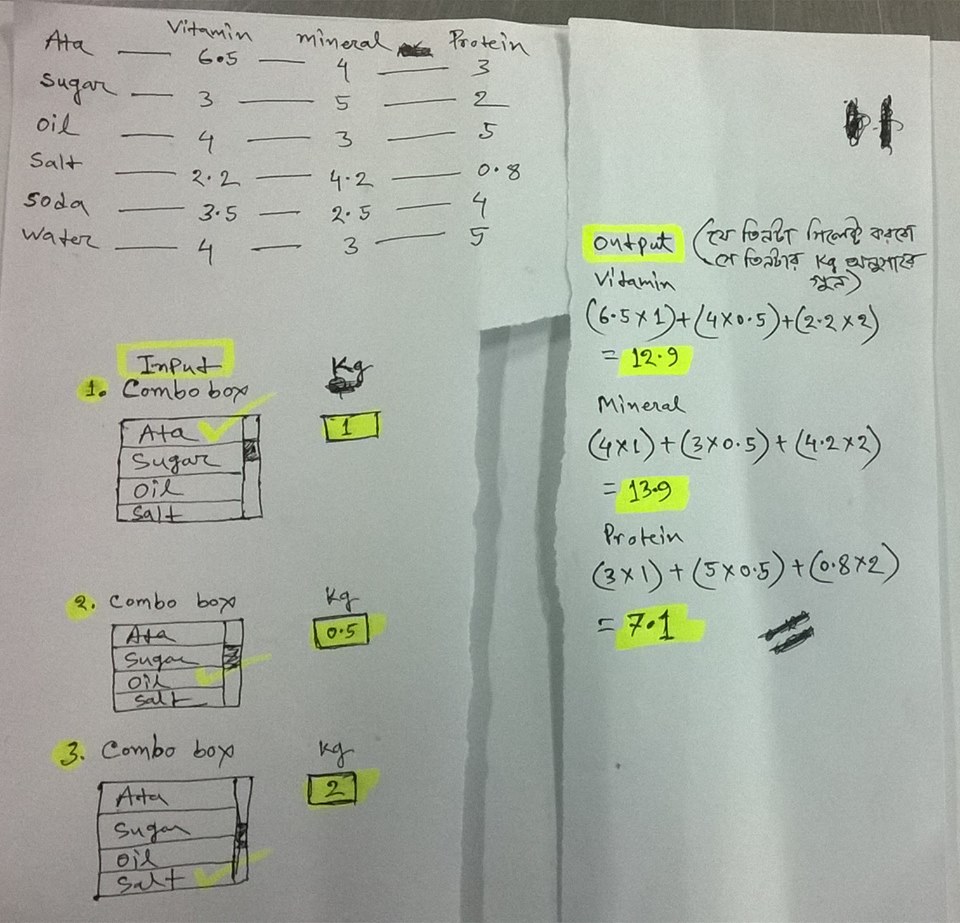 Vitamin mineral Protein
Ata — 6.5 — 4 — 3
Sugar — 3 — 5 — 2
Oil — 4 — 3 — 5
Salt — 2.2 — 4.2 — 0.8
Soda — 3.5 — 2.5 — 4
Water — 4 — 3 — 5
Input
Kg
1. Combo box
1
Ata
Sugar
Oil
Salt
2. Combo box Kg
0.5
Ata
Sugar
Oil
Salt
3. Combo box Kg
2
Ata
Sugar
Oil
Salt
Output (যে তিনটা সিলেক্ট করবো
সে তিনটার Kg অনুসারে
গুন)
Vitamin
(6.5 x 1) + (4 x 0.5) + (2.2 x 2)
= 12.9
Mineral
(4 x 1) + (3 x 0.5) + (4.2 x 2)
= 13.9
Protein
(3 x 1) + (5 x 0.5) + (0.8 x 2)
= 7.1